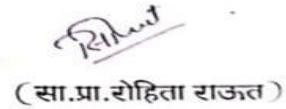 (सा.प्रा.रोहिता राऊत)